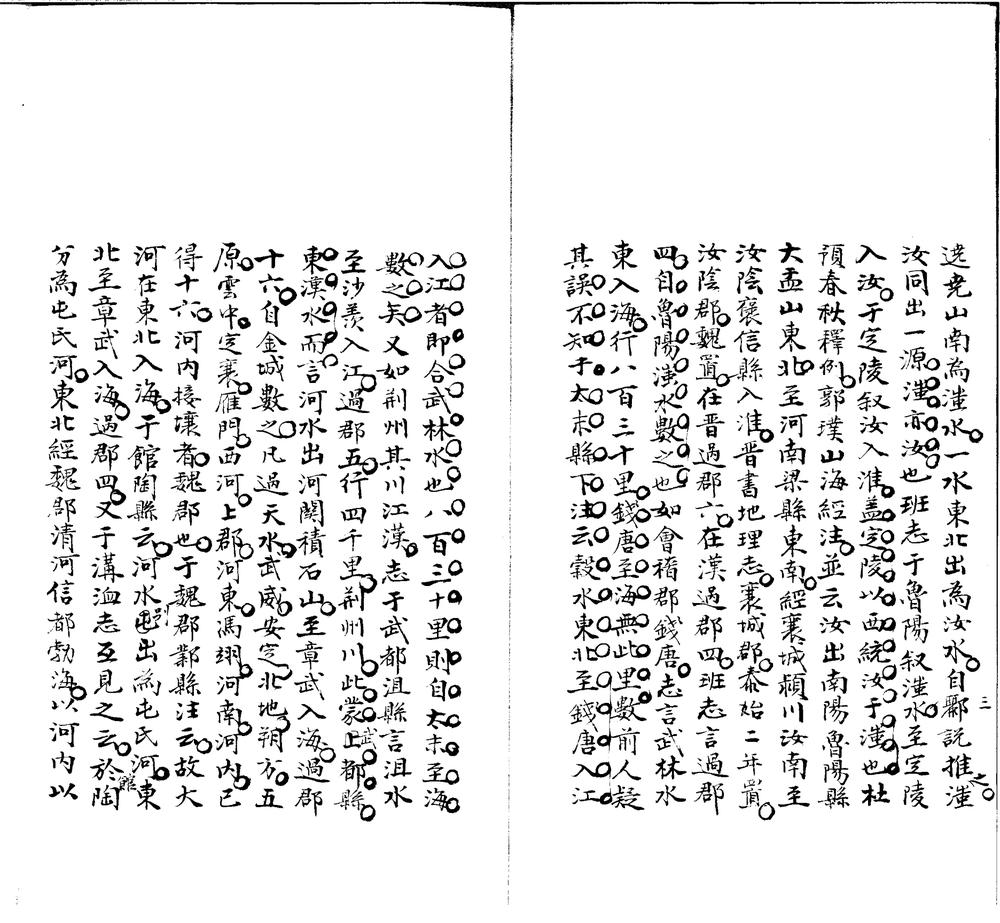 逕堯山南為滍水一水東北出為汝水自酈說推之滍
汝同出一源滍亦汝也班志于魯陽叙滍水至定陵
入汝于定陵叙汝入淮蓋定陵以西統汝于滍也杜
預春秋釋例郭璞山海經注並云汝出南陽魯陽縣
大孟山東北至河南梁縣東南經襄城潁川汝南至
汝陰褒信縣入淮晋書地理志襄城郡泰始二年置
汝陰郡魏置在晋過郡六在漢過郡四班志言過郡
四自魯陽滍水數之也如會稽郡錢唐志言武林水
東入海行八百三十里錢唐至海無此里數前人疑
其誤不知于太末縣下注云穀水東北至錢唐入江
三
入江者即合武林水也八百三十里則自太末至海
數之矣又如荆州其川江漢志于武都沮縣言沮水
至沙羨入江過郡五行四千里荆州川此蒙上武都縣
東漢水而言河水出河關積石山至章武入海過郡
十六自金城數之凡過天水武威安定北地朔方五
原雲中定襄雁門西河上郡河東馮翊河南河内已
得十六河内接壤者魏郡也于魏郡鄴縣注云故大
河在東北入海于館陶縣云河水别出為屯氏河東
北至章武入海過郡四又于溝洫志互見之云於館陶
分為屯氏河東北經魏郡清河信都勃海以河内以